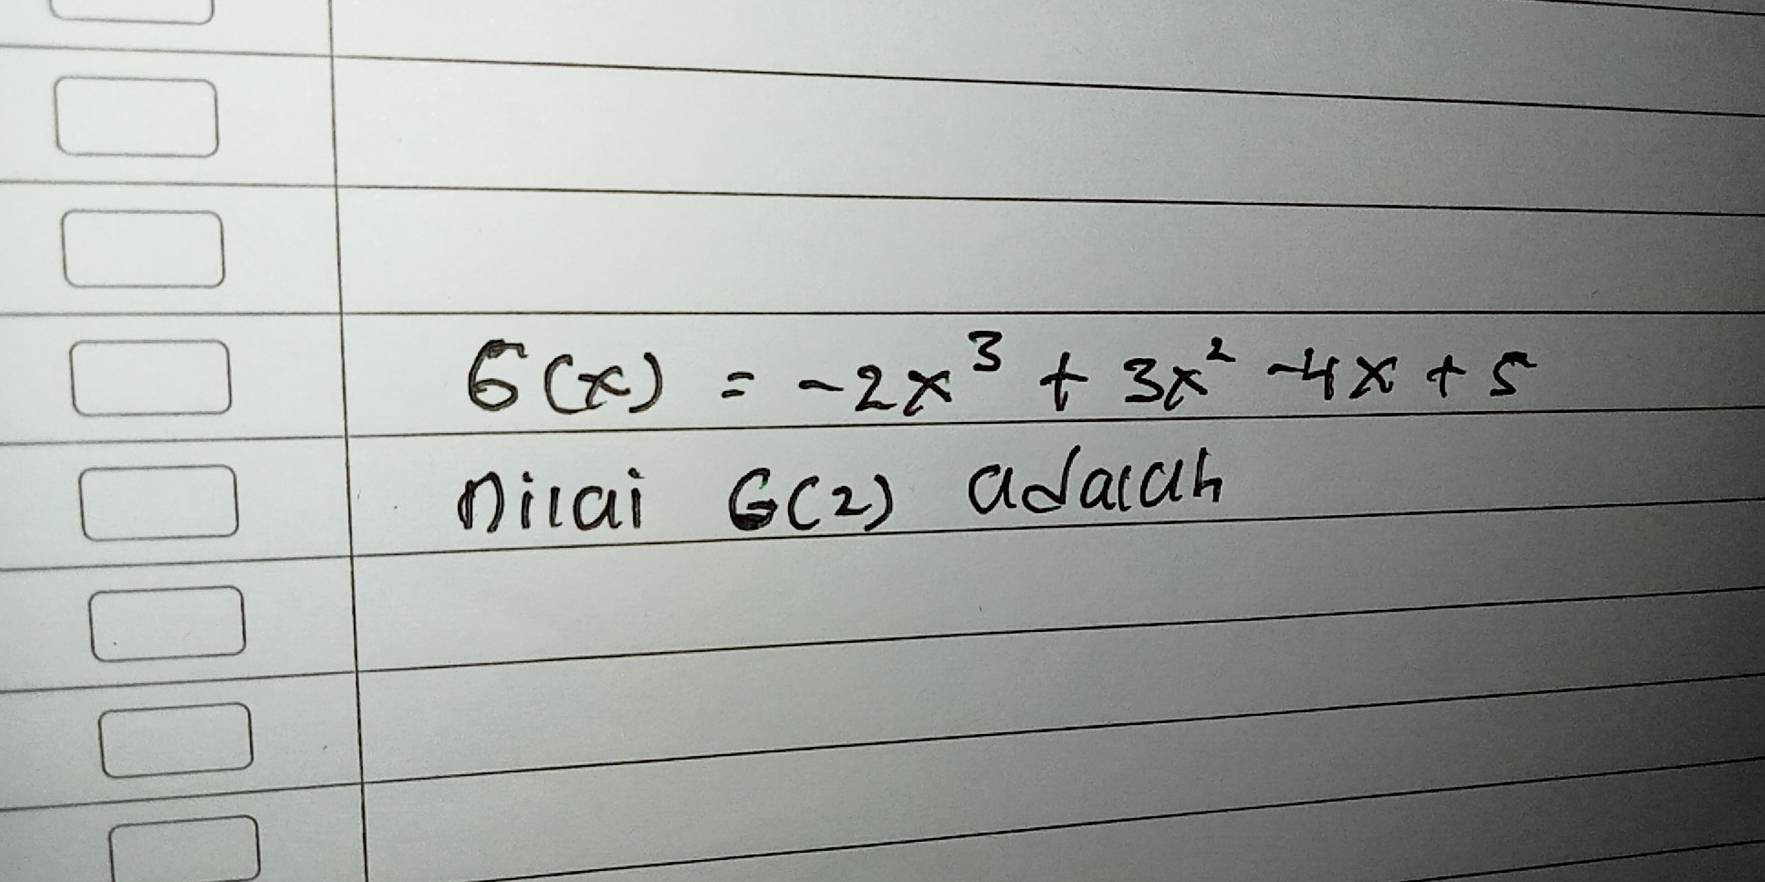 G(x) = -2x³ + 3x² -4x + 5
nilai G(2) adalah